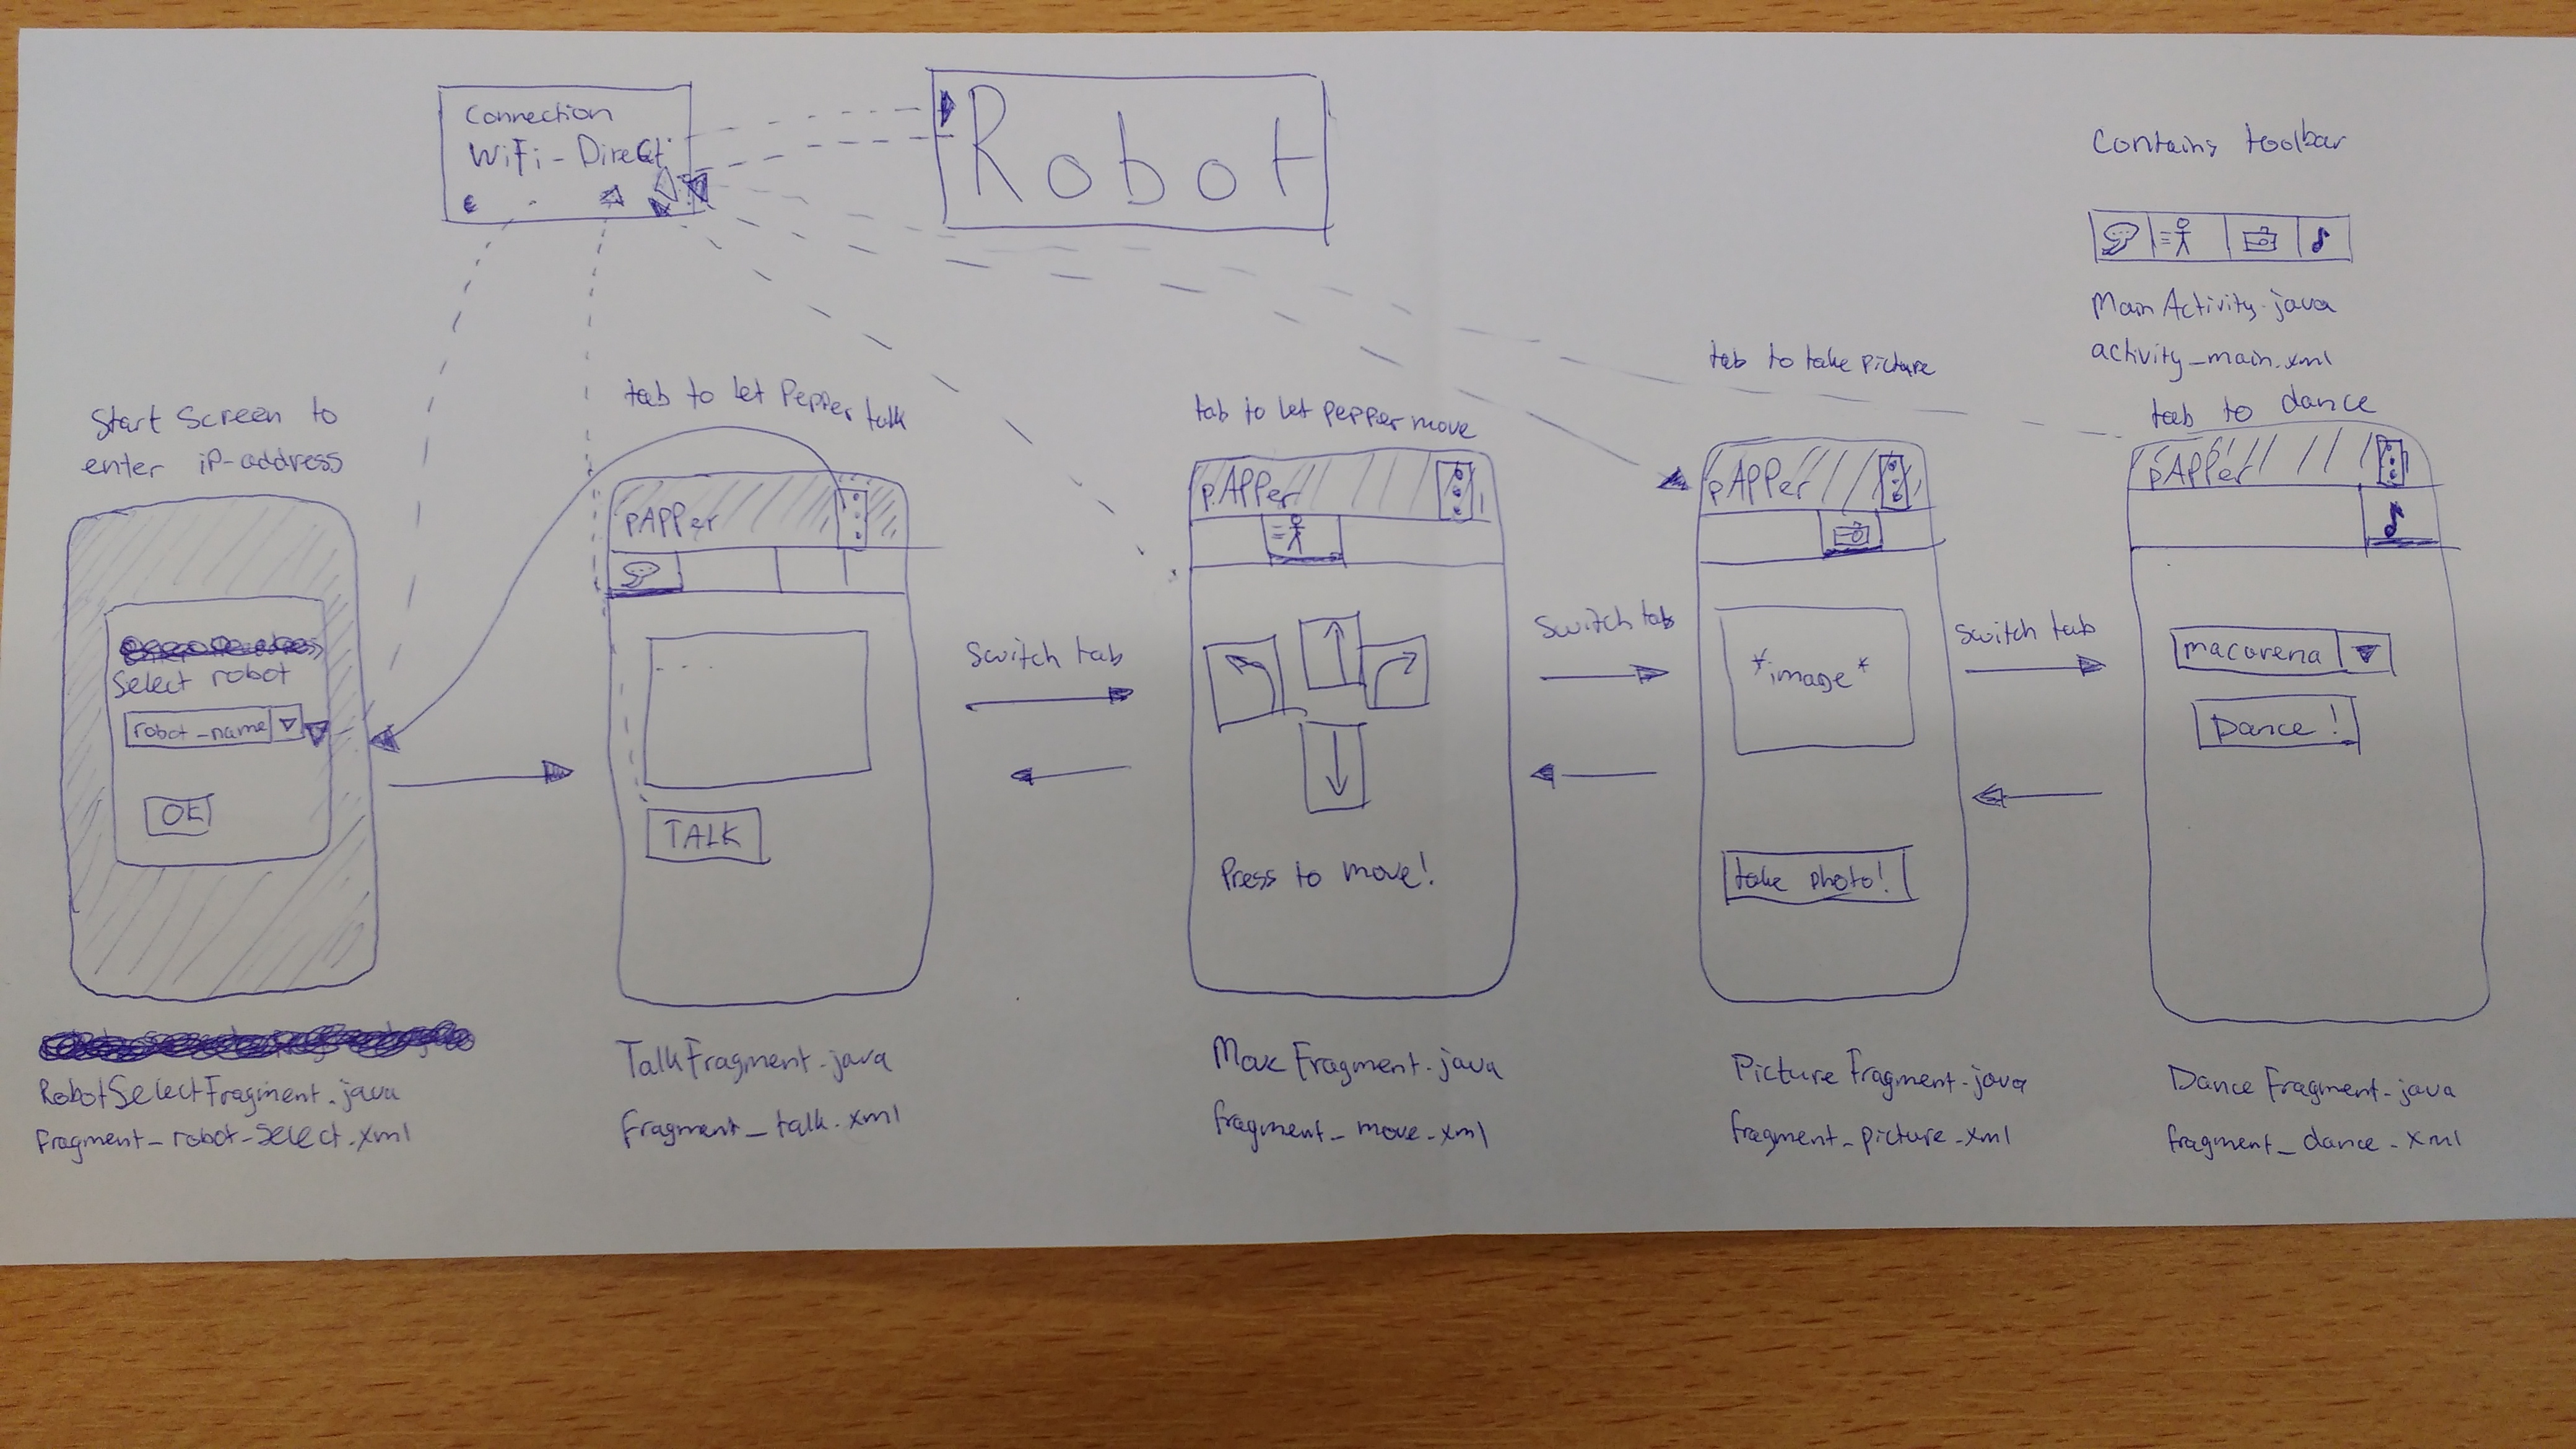 Connection
WiFi-Direct
Robot
Contains toolbar
MainActivity.java
activity_main.xml
Start Screen to
enter iP-address
Select robot
robot_name
OK
RobotSelectFragment.java
fragment_robot-select.xml
tab to let Pepper talk
pAPPer
- - -
TALK
TalkFragment.java
fragment_talk.xml
Switch tab
tab to let pepper move
pAPPer
Press to move!
MoveFragment.java
fragment_move.xml
Switch tab
tab to take picture
pAPPer
*image*
take photo!
PictureFragment.java
fragment_picture.xml
Switch tab
tab to dance
pAPPer
macarena
Dance!
DanceFragment.java
fragment_dance.xml